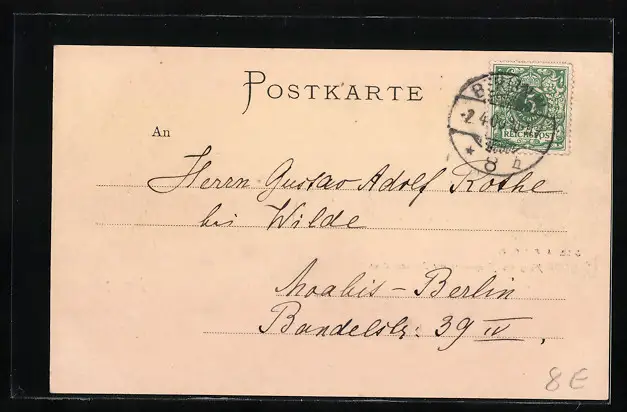 POSTKARTE
5
REICHSPOST
BERLIN
-2.4.00
* 8 h
An
Herrn Gustav Adolf Kothe
bei Wilde
Moabit - Berlin
Bandelstr. 39 IV
8E